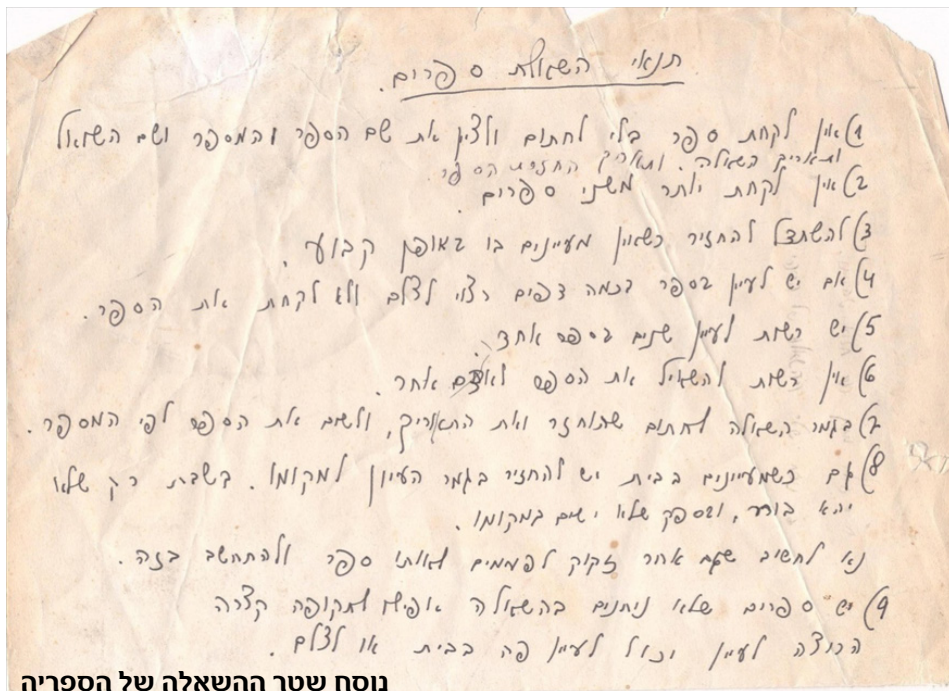 תנאי השאלת ספרים.
1) אין לקחת ספר בלי לחתום ולציין את שם הספר והמספר ושם השואל
ותאריך השאלה. ותאריך החזרת הספר.
2) אין לקחת יותר משני ספרים.
3) להשתדל להחזיר כשאין מעיינים בו באופן קבוע.
4) אם יש לעיין בספר בכמה דפים רצוי לצלם ולא לקחת את הספר.
5) יש רשות לעיין שנים בספר אחד.
6) אין רשות להשאיל את הספר לאדם אחר.
7) בגמר השאלה לחתום שהוחזר ואת התאריך, ולשים את הספר לפי המספר.
8) גם כשמעיינים בבית יש להחזיר בגמר העיון למקומו. בשבת רק שלא
יהא בורר, ובספק שלא ישים במקומו.
נא לחשיב שגם אחר זקוק לפעמים לאותו ספר ולהתחשב בזה.
9) יש ספרים שלא ניתנים בהשאלה אפילו לתקופה קצרה
הרוצה לעיין יכול לעיין פה בבית או לצלם.
נוסח שטר ההשאלה של הספריה